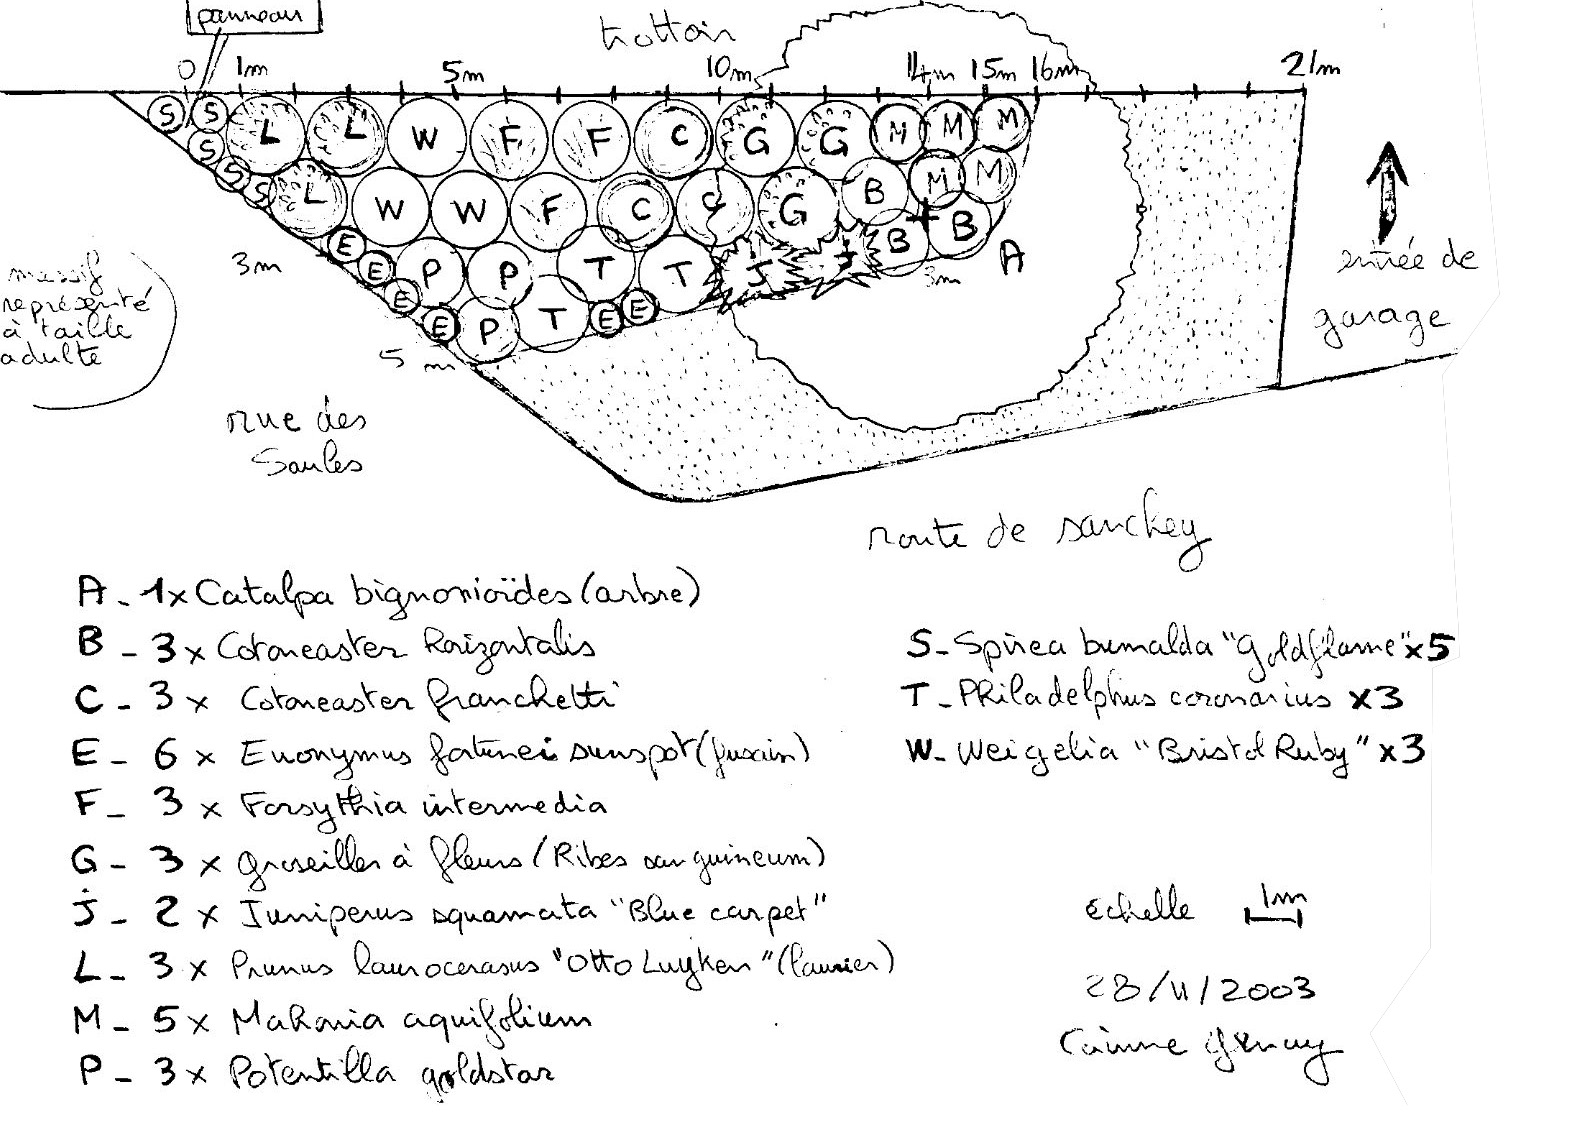 panneau
trottoir
0 1m 5m 10m 14m 15m 16m 21m
S S L L W F F C G G M M M
S S S L W W F C C G B M M
E E P P T T J J B B A
3m 3m
E E P T E E
5m
massif
représenté
à taille
adulte
entrée de
garage
rue des
Saules
route de sanchey
A - 1x Catalpa bignonioïdes (arbre)
B - 3 x Cotoneaster horizontalis
C - 3 x Cotoneaster franchetti
E - 6 x Euonymus fortunei sunspot (fusain)
F - 3 x Forsythia intermedia
G - 3 x groseiller à fleurs (Ribes sanguineum)
J - 2 x Juniperus squamata "Blue carpet"
L - 3 x Prunus laurocerasus "Otto Luyken" (laurier)
M - 5 x Mahonia aquifolium
P - 3 x Potentilla goldstar
S - Spirea bumalda "goldflame" x5
T - Philadelphus coronarius x3
W - Weigelia "Bristol Ruby" x3
echelle 1m
28/11/2003